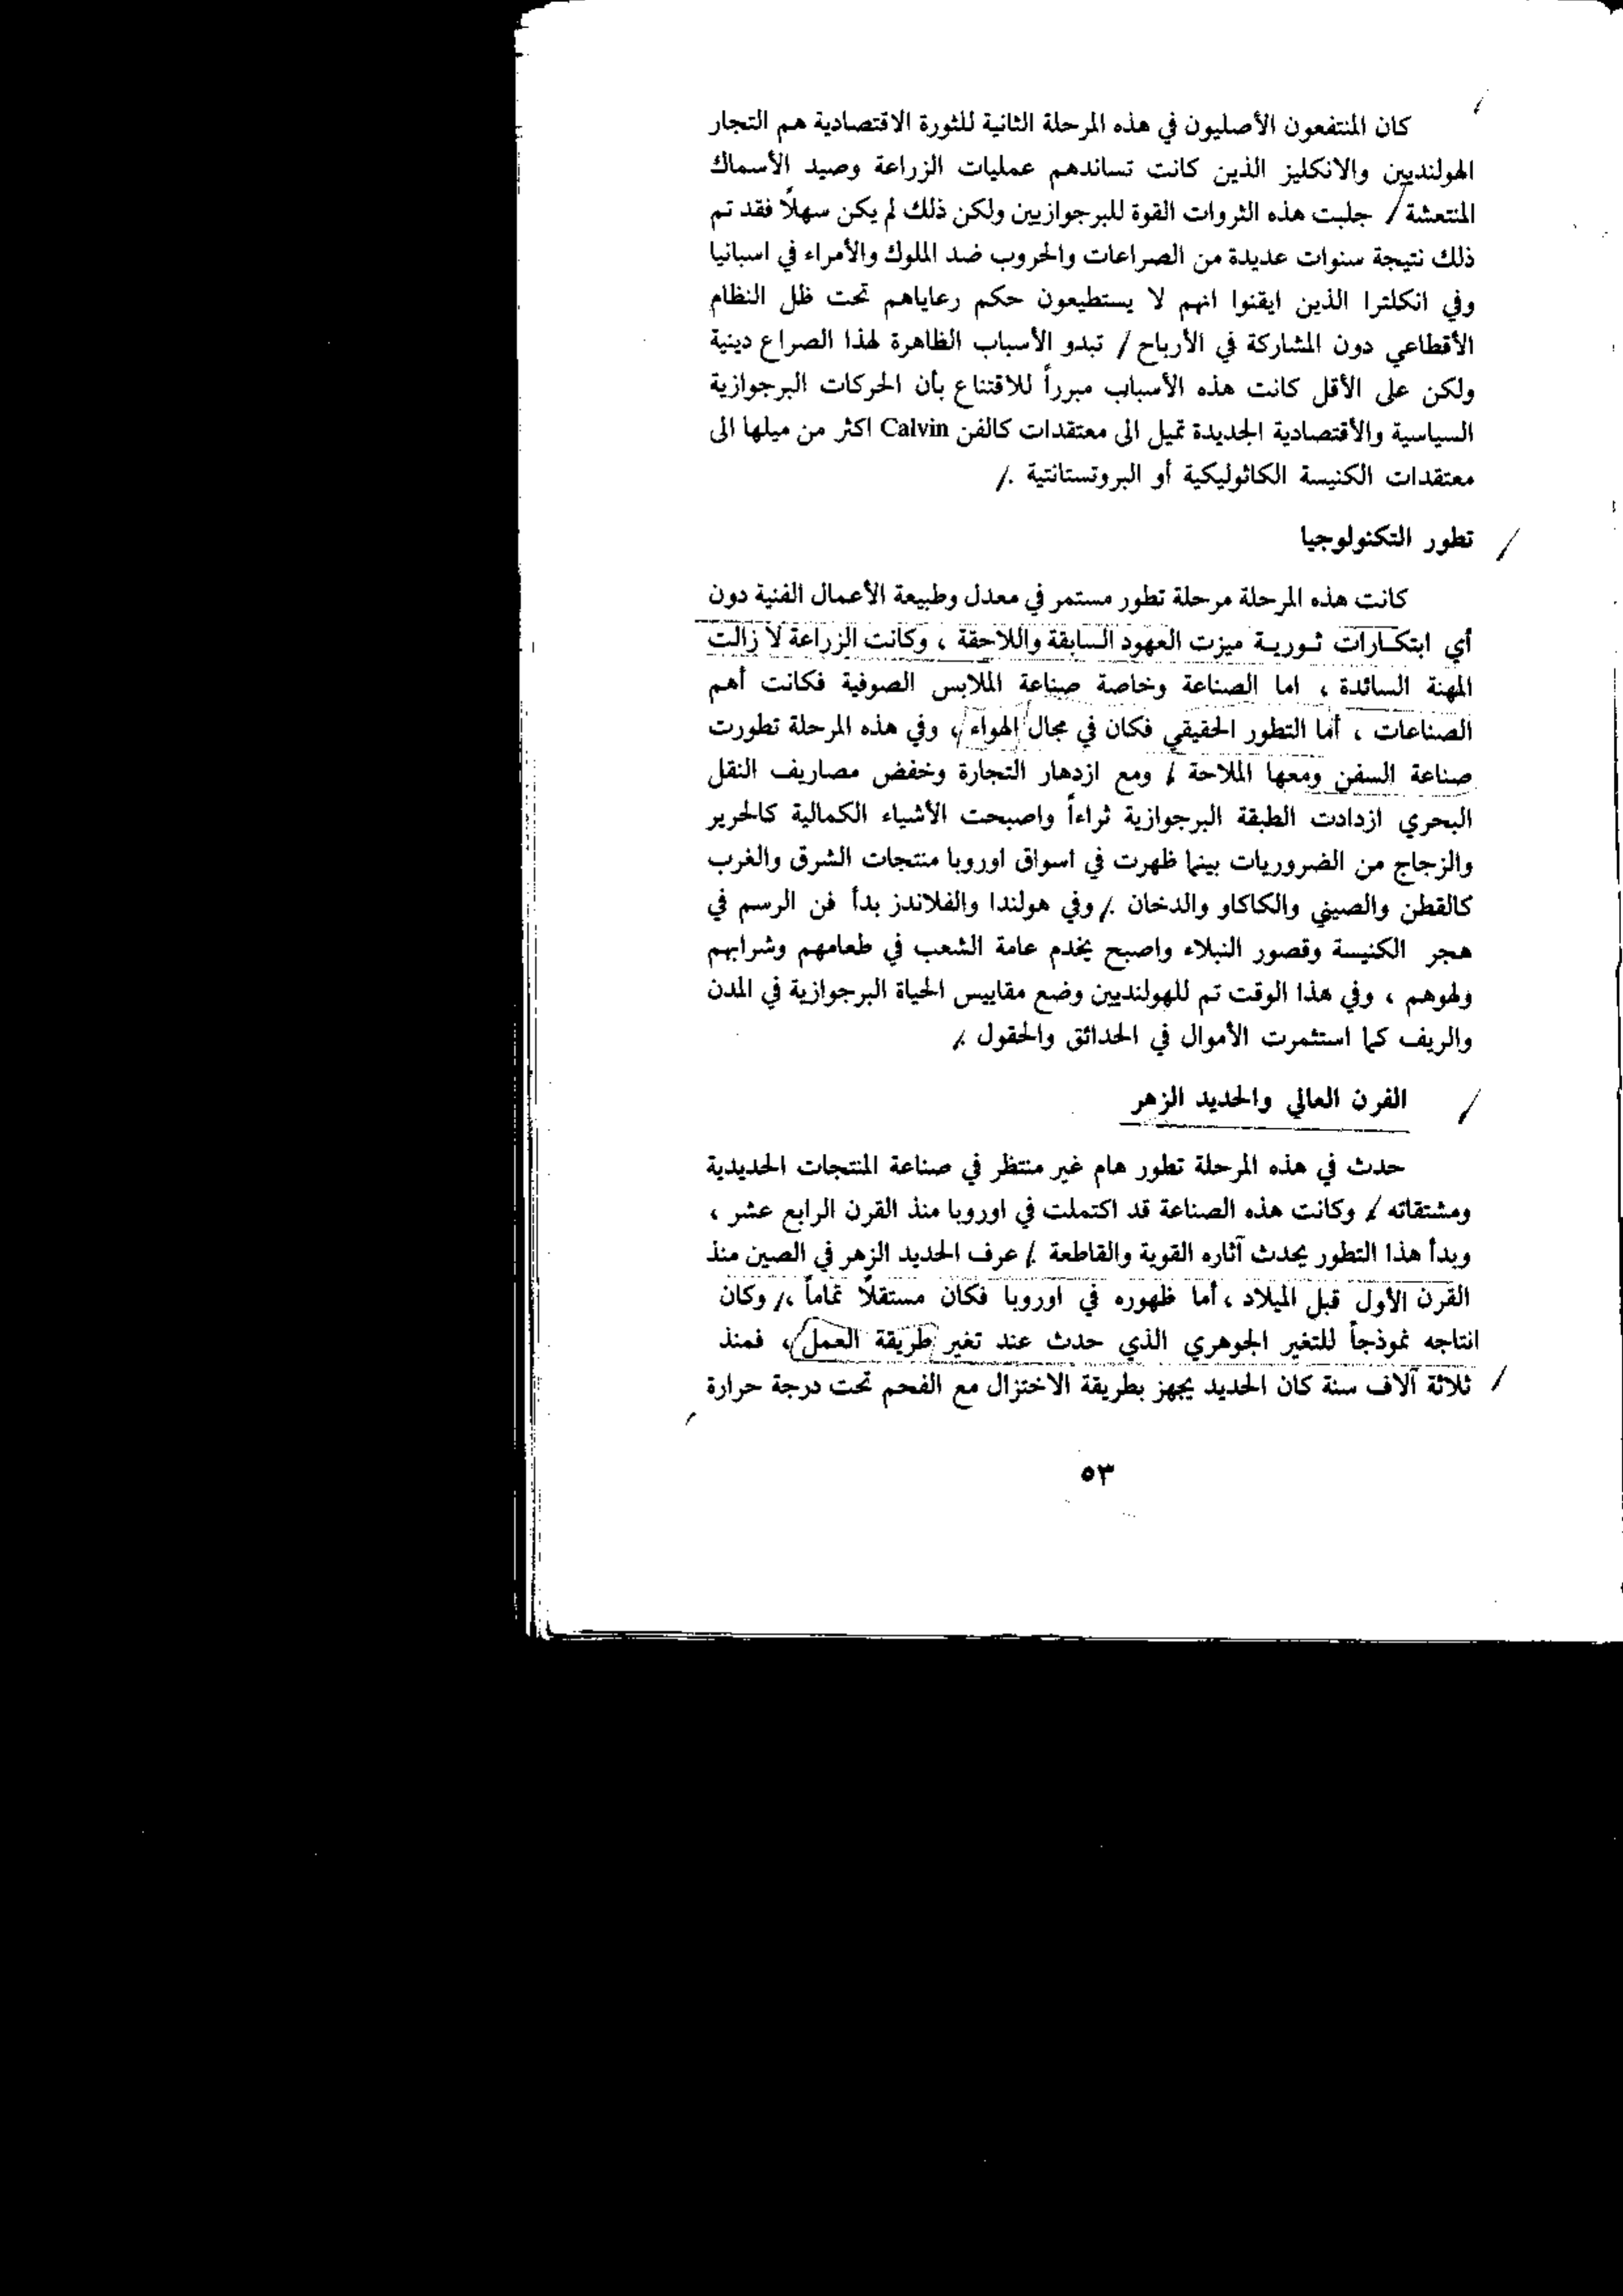 كان المنتفعون الأصليون في هذه المرحلة الثانية للثورة الاقتصادية هم التجار
الهولنديين والانكليز الذين كانت تساندهم عمليات الزراعة وصيد الأسماك
المنتعشة / جلبت هذه الثروات القوة للبرجوازيين ولكن ذلك لم يكن سهلاً فقد تم
ذلك نتيجة سنوات عديدة من الصراعات والحروب ضد الملوك والأمراء في اسبانيا
وفي انكلترا الذين ايقنوا انهم لا يستطيعون حكم رعاياهم تحت ظل النظام
الأقطاعي دون المشاركة في الأرباح / تبدو الأسباب الظاهرة لهذا الصراع دينية
ولكن على الأقل كانت هذه الأسباب مبرراً للاقتناع بأن الحركات البرجوازية
السياسية والأقتصادية الجديدة تميل الى معتقدات كالفن Calvin اكثر من ميلها الى
معتقدات الكنيسة الكاثوليكية أو البروتستانتية ./
تطور التكنولوجيا
كانت هذه المرحلة مرحلة تطور مستمر في معدل وطبيعة الأعمال الفنية دون
أي ابتكارات ثورية ميزت العهود السابقة واللاحقة ، وكانت الزراعة لا زالت
المهنة السائدة ، اما الصناعة وخاصة صناعة الملابس الصوفية فكانت أهم
الصناعات ، أما التطور الحقيقي فكان في مجال الهواء ، وفي هذه المرحلة تطورت
صناعة السفن ومعها الملاحة / ومع ازدهار التجارة وخفض مصاريف النقل
البحري ازدادت الطبقة البرجوازية ثراءاً واصبحت الأشياء الكمالية كالحرير
والزجاج من الضروريات بينما ظهرت في اسواق اوروبا منتجات الشرق والغرب
كالقطن والصيني والكاكاو والدخان ./ وفي هولندا والفلاندز بدأ فن الرسم في
هجر الكنيسة وقصور النبلاء واصبح يخدم عامة الشعب في طعامهم وشرابهم
ولهوهم ، وفي هذا الوقت تم للهولنديين وضع مقاييس الحياة البرجوازية في المدن
والريف كما استثمرت الأموال في الحدائق والحقول ./
الفرن العالي والحديد الزهر
حدث في هذه المرحلة تطور هام غير منتظر في صناعة المنتجات الحديدية
ومشتقاته / وكانت هذه الصناعة قد اكتملت في اوروبا منذ القرن الرابع عشر ،
وبدأ هذا التطور يحدث آثاره القوية والقاطعة ./ عرف الحديد الزهر في الصين منذ
القرن الأول قبل الميلاد ، أما ظهوره في اوروبا فكان مستقلاً تماماً ،/ وكان
انتاجه نموذجاً للتغير الجوهري الذي حدث عند تغير طريقة العمل ، فمنذ
ثلاثة آلاف سنة كان الحديد يجهز بطريقة الاختزال مع الفحم تحت درجة حرارة
٥٣